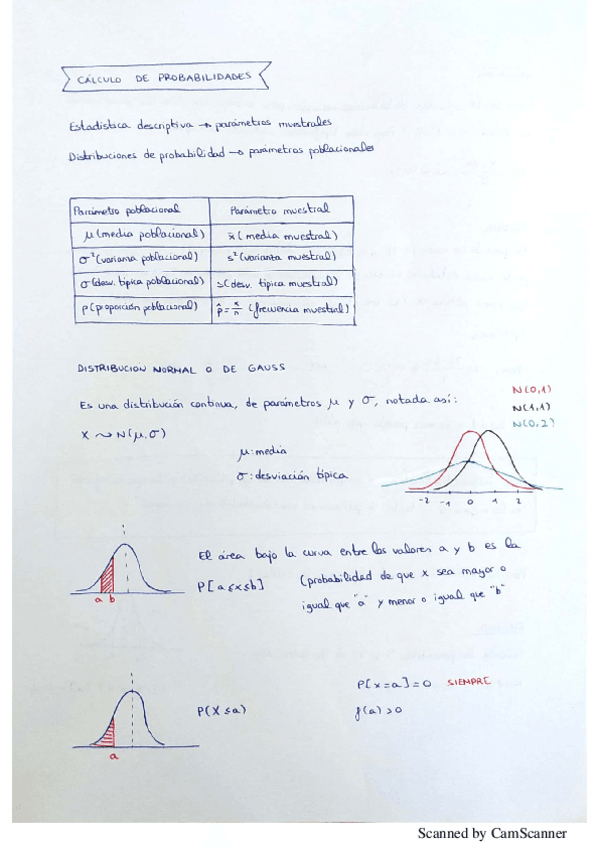 CÁLCULO DE PROBABILIDADES
Estadística descriptiva → parámetros muestrales
Distribuciones de probabilidad → parámetros poblacionales
Parámetro poblacional Parámetro muestral
μ (media poblacional) x̄ (media muestral)
σ² (varianza poblacional) s² (varianza muestral)
σ (desv. típica poblacional) s (desv. típica muestral)
p (proporción poblacional) p̂ = x/n (frecuencia muestral)
DISTRIBUCION NORMAL O DE GAUSS
Es una distribución continua, de parámetros μ y σ, notada así:
X ~ N(μ,σ)
μ: media
σ: desviación típica
N(0,1)
N(1,1)
N(0,2)
-2 -1 0 1 2
El área bajo la curva entre los valores a y b es la
P[a≤x≤b] (probabilidad de que x sea mayor o
igual que "a" y menor o igual que "b"
a b
P[x=a]=0 SIEMPRE
P(X≤a) f(a)>0
a
Scanned by CamScanner